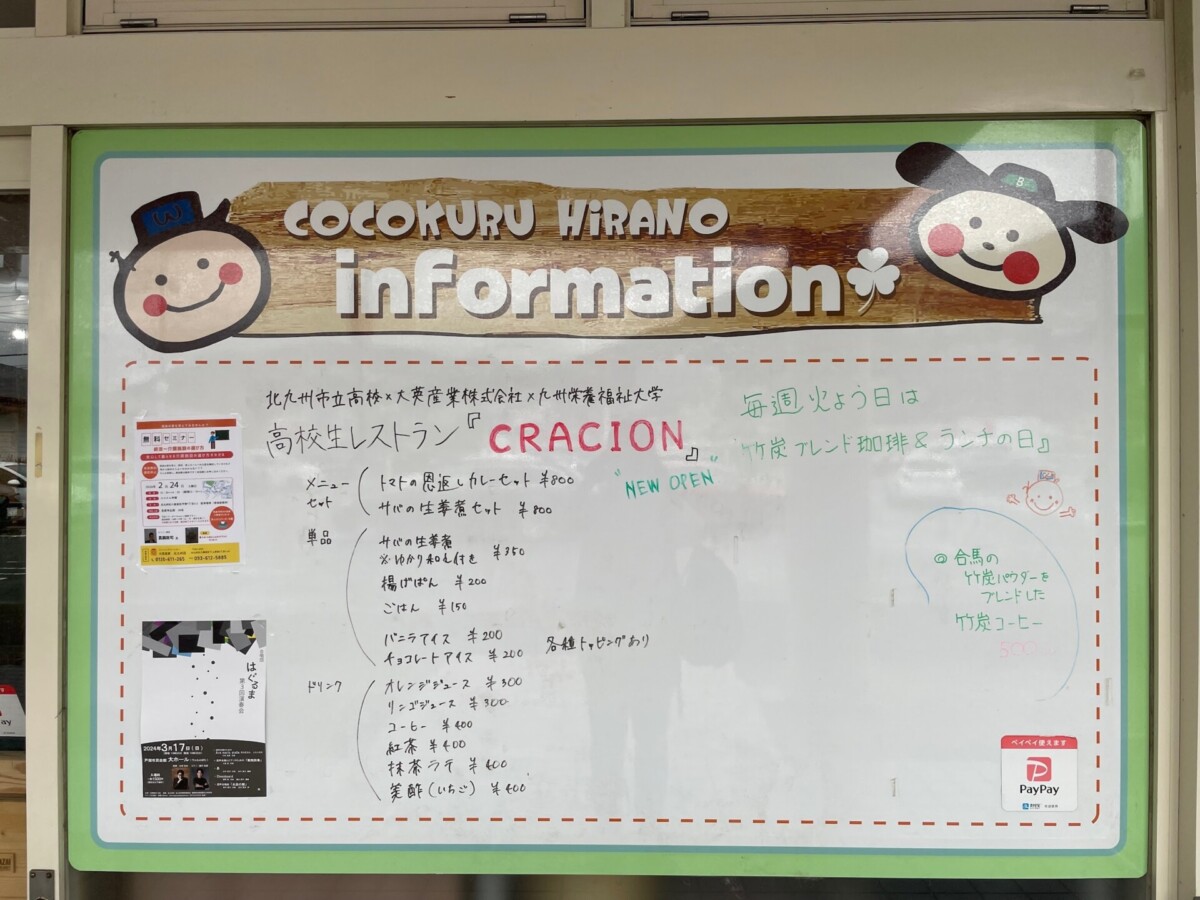 COCOKURU HiRANO
information
B
北九州市立高校×大英産業株式会社×九州栄養福祉大学
高校生レストラン『CRACION』
"NEW OPEN"
メニュー
セット
トマトの恩返しカレーセット ¥800
サバの生姜煮セット ¥800
単品
サバの生姜煮
※ゆかり和え付き ¥350
揚げぱん ¥200
ごはん ¥150
バニラアイス ¥200
チョコレートアイス ¥200
各種トッピングあり
ドリンク
オレンジジュース ¥300
リンゴジュース ¥300
コーヒー ¥400
紅茶 ¥400
抹茶ラテ ¥400
美酢(いちご) ¥400
毎週火よう日は
『竹炭ブレンド珈琲&ランチの日』
◎合馬の
竹炭パウダーを
ブレンドした
竹炭コーヒー
300
無料セミナー
2月24日
0120-411-265
093-412-0885
はぐるま
第3回演奏会
2024年3月17日(日)
大ホール
ペイペイ使えます
PayPay